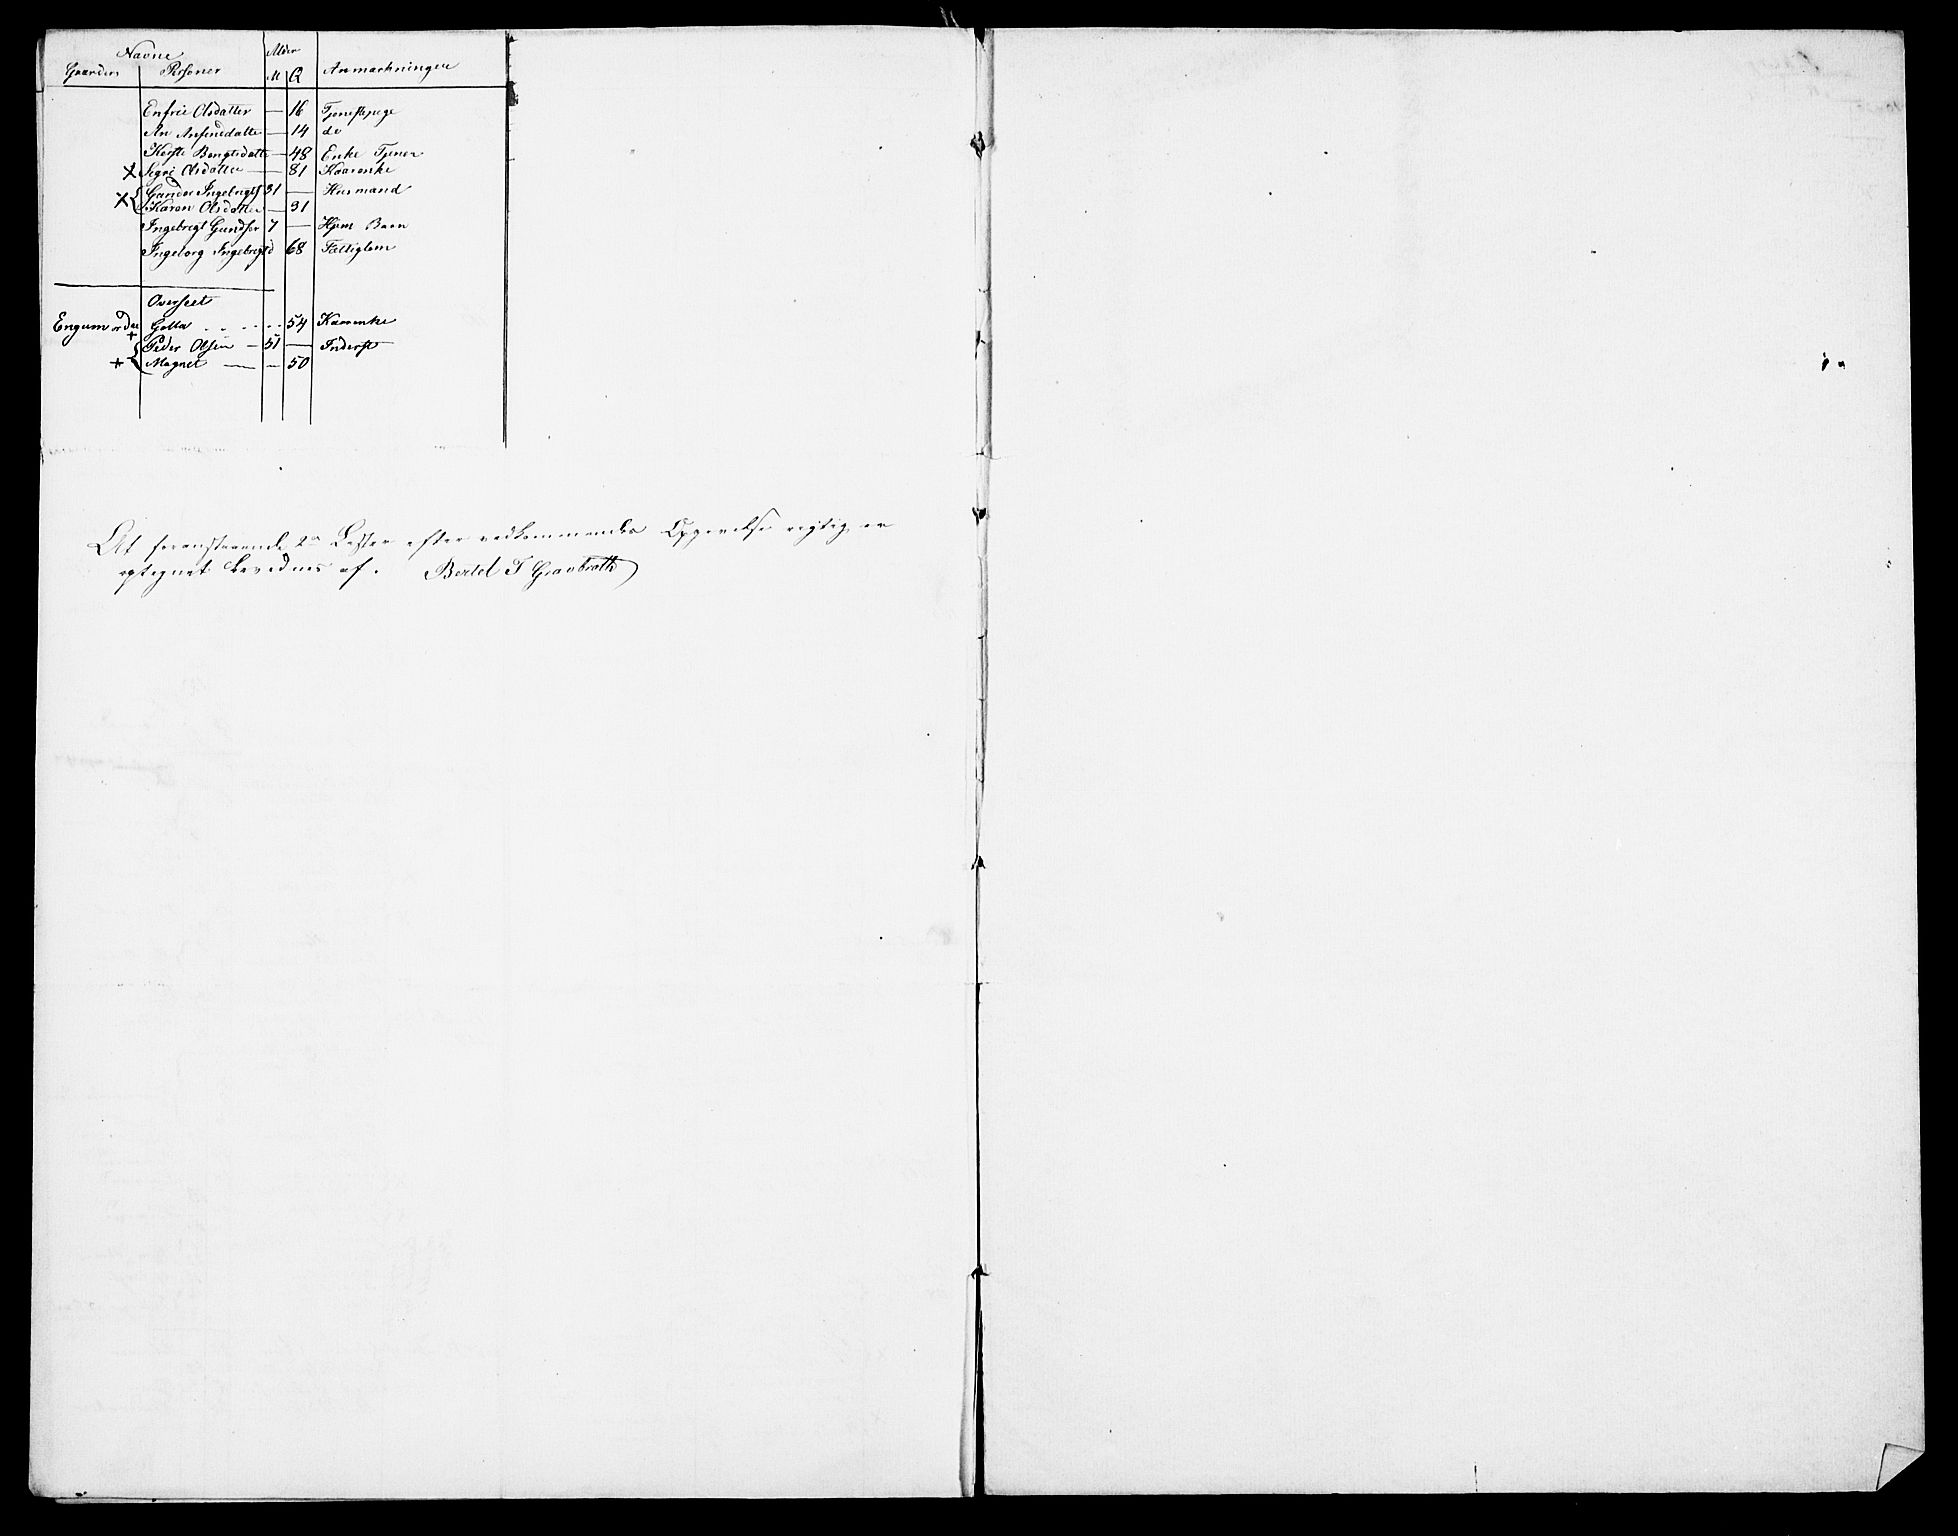 Navne Alder
Gaardens Personer M Q Anmærkninger
Enfrie Olsdatter — 16 Tjenestepige
An Ansensdatte — 14 do
Kerste Bengtsdatte — 48 Enke Tjener
X Segri Olsdatter — 81 Kaarenke
X Gunder Ingebrigts 31 — Husmand
Karen Olsdatter — 31
Ingebrigt Gunders 7 — Hjem Barn
Ingeborg Ingebrigtd 68 Fattiglem
Overseet
Engum Golla . . . . . 54 Kaarenke
+ Peder Olsen — 51 — Inderst
+ Magnet — — 50
At foranstaaende 2de Lister efter vedkommendes Opgivelse rigtig er
optegnet bevidnes af. Bertel T Gravbrøth